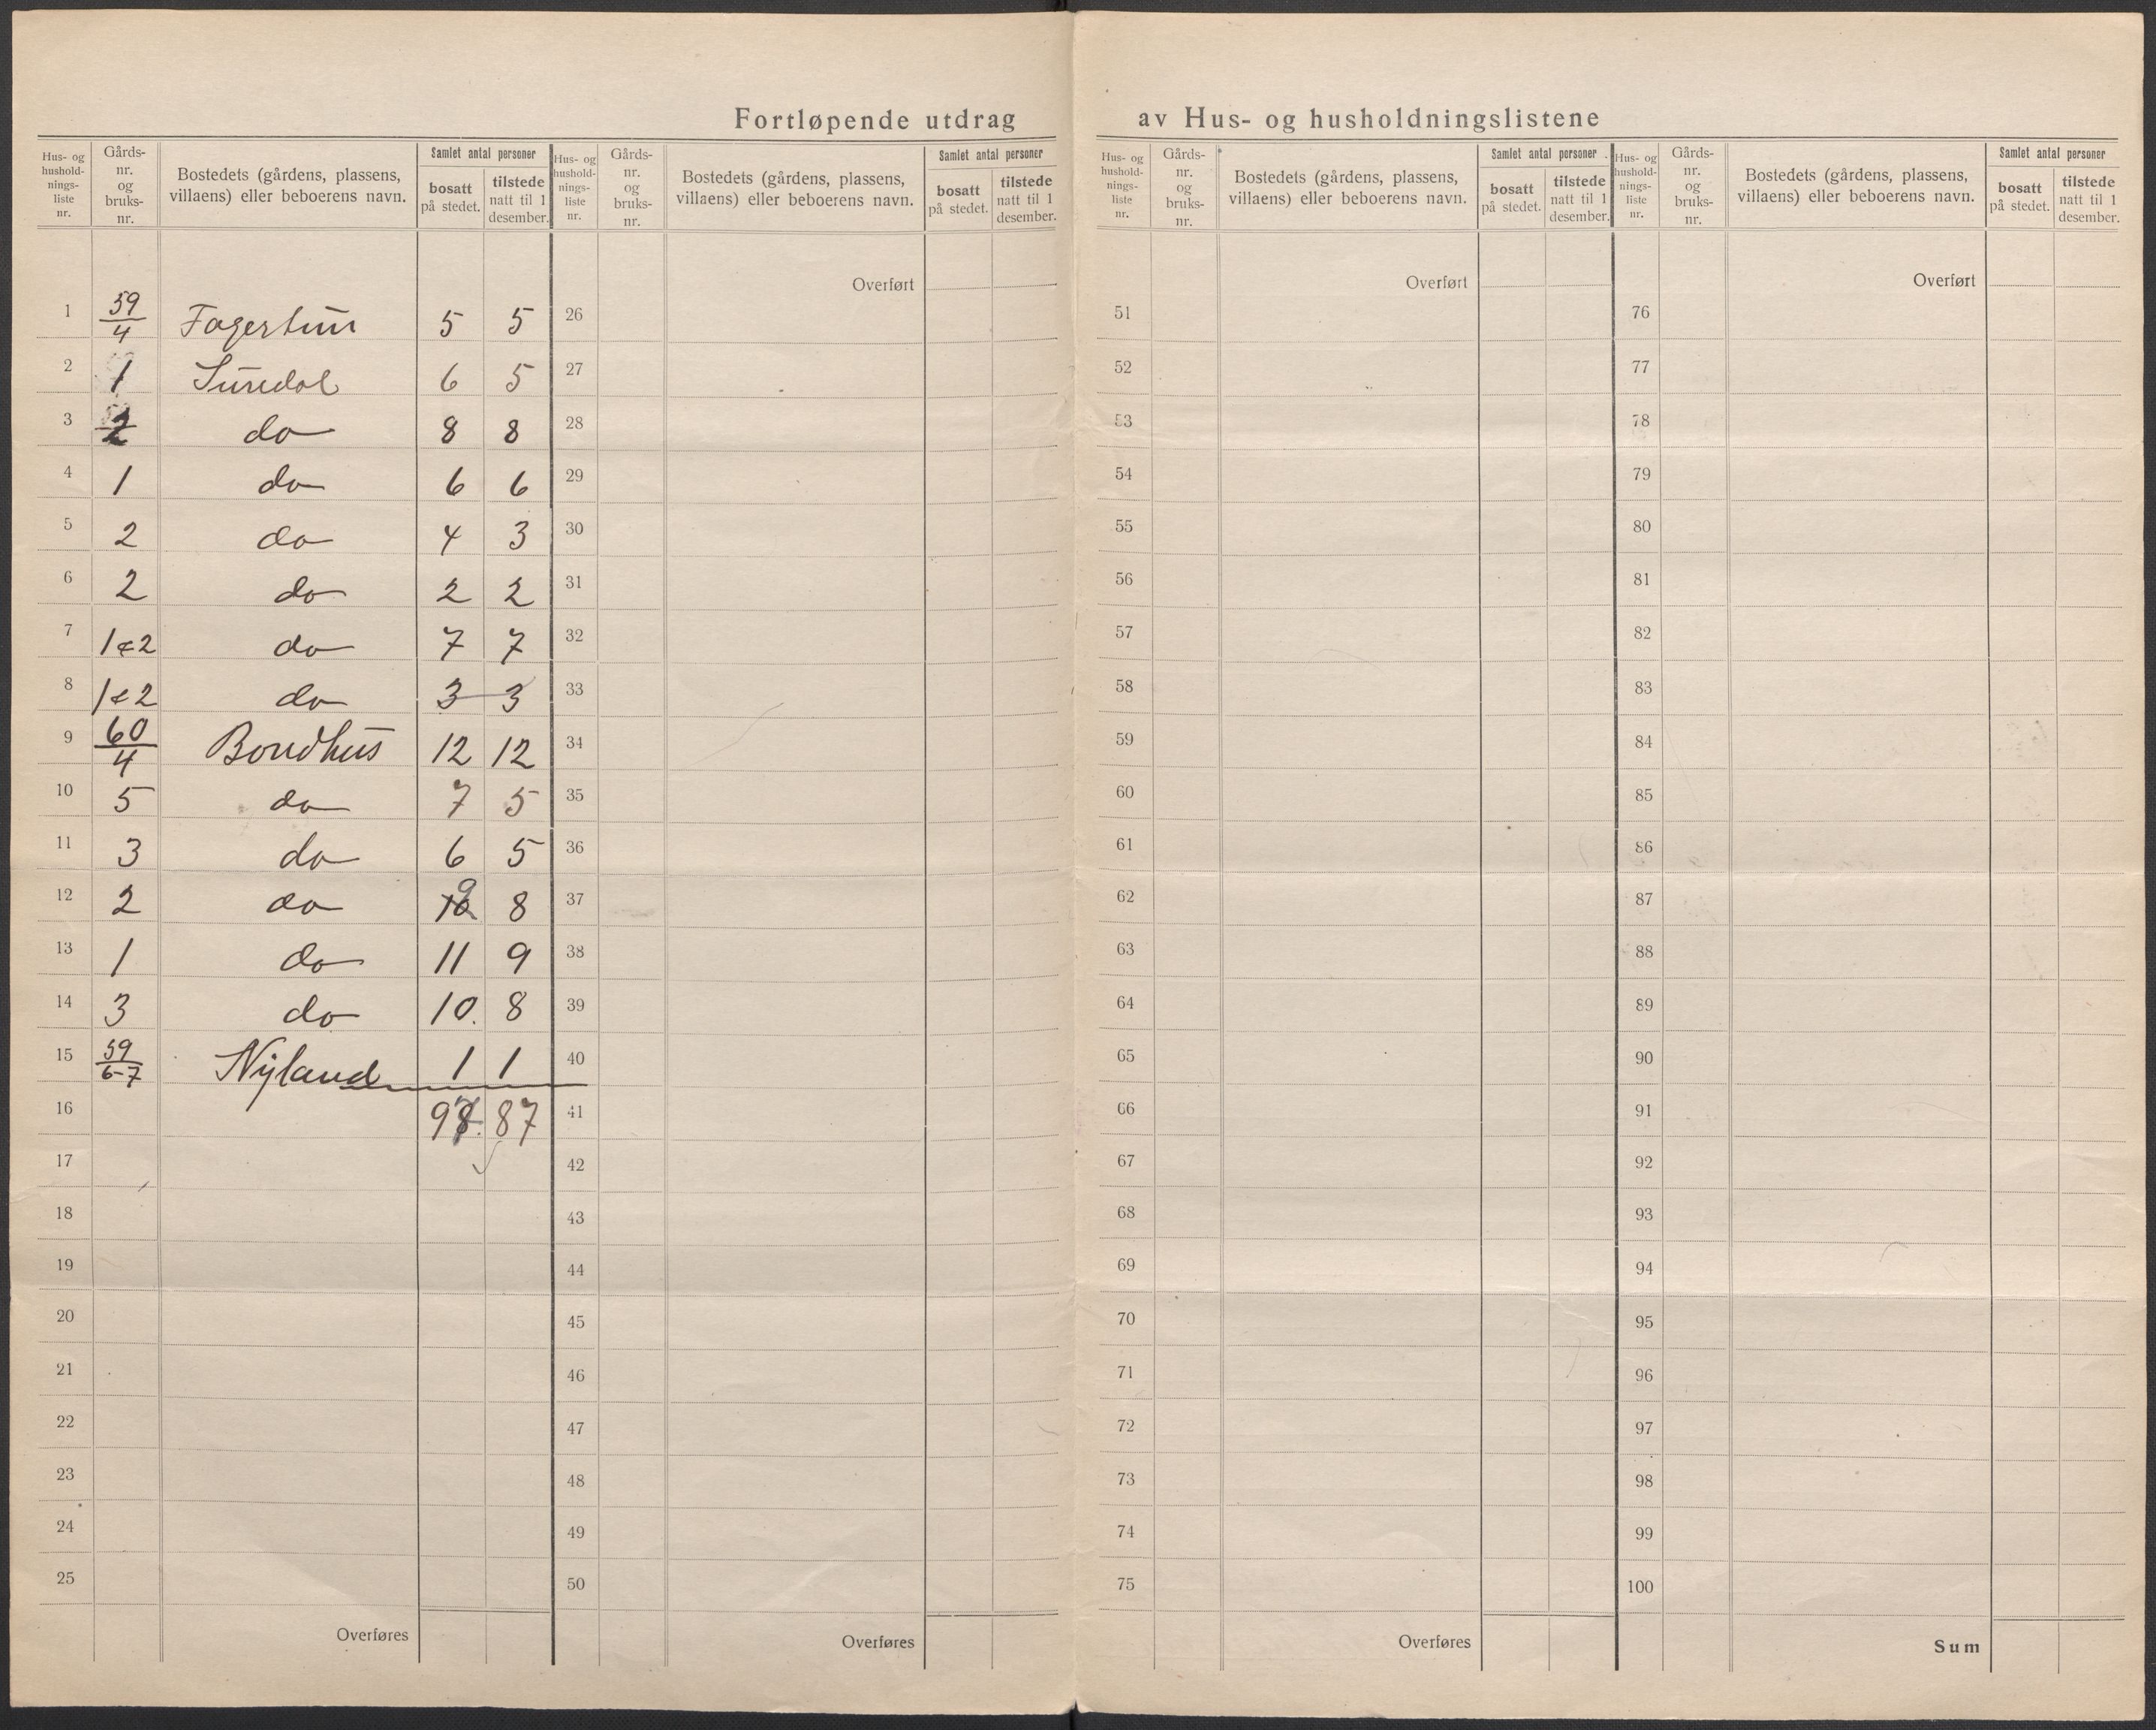 Fortløpende utdrag av Hus- og husholdningslistene
Hus- og hushold-nings-liste nr. | Gårds-nr. og bruks-nr. | Bostedets (gårdens, plassens, villaens) eller beboerens navn. | Samlet antal personer | bosatt på stedet. | tilstede natt til 1 desember.
Hus- og hushold-nings-liste nr. | Gårds-nr. og bruks-nr. | Bostedets (gårdens, plassens, villaens) eller beboerens navn. | Samlet antal personer | bosatt på stedet. | tilstede natt til 1 desember.
Hus- og hushold-nings-liste nr. | Gårds-nr. og bruks-nr. | Bostedets (gårdens, plassens, villaens) eller beboerens navn. | Samlet antal personer | bosatt på stedet. | tilstede natt til 1 desember.
Hus- og hushold-nings-liste nr. | Gårds-nr. og bruks-nr. | Bostedets (gårdens, plassens, villaens) eller beboerens navn. | Samlet antal personer | bosatt på stedet. | tilstede natt til 1 desember.
Overført Overført Overført
1 59/4 Fagertun 5 5 26 51 76
2 1 Sundal 6 5 27 52 77
3 2 do 8 8 28 53 78
4 1 do 6 6 29 54 79
5 2 do 4 3 30 55 80
6 2 do 2 2 31 56 81
7 1&2 do 7 7 32 57 82
8 1&2 do 3 3 33 58 83
9 60/4 Bondhus 12 12 34 59 84
10 5 do 7 5 35 60 85
11 3 do 6 5 36 61 86
12 2 do 9 8 37 62 87
13 1 do 11 9 38 63 88
14 3 do 10. 8 39 64 89
15 59/6-7 Nyland 1 1 40 65 90
16 97. 87 41 66 91
17 42 67 92
18 43 68 93
19 44 69 94
20 45 70 95
21 46 71 96
22 47 72 97
23 48 73 98
24 49 74 99
25 50 75 100
Overføres Overføres Overføres Sum